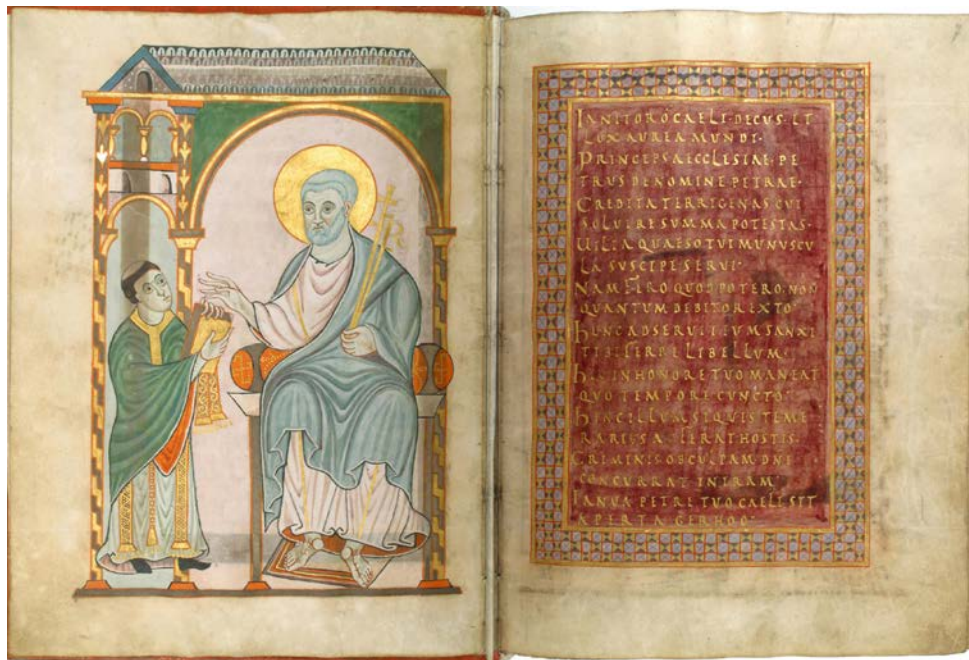 IANITOR O CAELI · DECUS · ET
LUX AUREA MUNDI ·
PRINCEPS AECCLESIAE · PE
TRUS DE NOMINE PETRAE ·
CREDITA TERRIGENAS CUI
SOLUERE SUMMA POTESTAS ·
UILIA QUAESO TUI MUNUSCU
LA SUSCIPE SERUI ·
NAM FERO QUOD POTERO · NON
QUANTUM DEBITOR EXTO ·
HUNC AD SERUITIUM SANXI
TIBI FERRE LIBELLUM ·
HIC IN HONORE TUO MANEAT
QUO TEMPORE CUNCTO ·
HINC ILLUM SI QUIS TEME
HOSTIS ·
CRIMINIS OB CULPAM DNI
CONCURRAT IN IRAM ·
IANUA PETRE TUO CAELI SIT
APERTA GERHOO ·